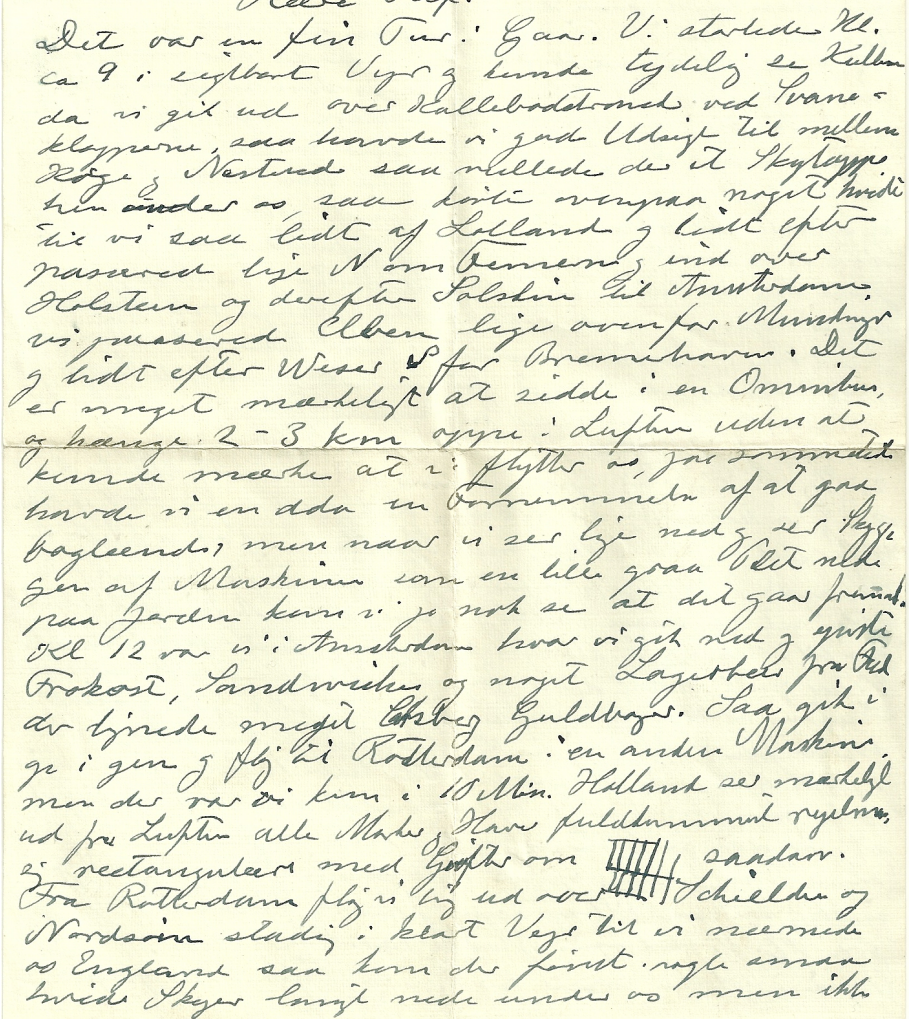 Det var en fin Tur i Gaar. Vi startede Kl.
ca 9 i sigtbart Vejr og kunde tydelig se Kullen
da vi gik ud over Kallebodstrand ved Svane-
klapperne, saa havde vi god Udsigt til mellem
Køge og Næstved saa vællede der et Skytæppe
hen under os, saa kørte ovenpaa noget hvidt
til vi saa lidt af Lolland og lidt efter
passered lige N om Femern og ind over
Holstein og derefter Solskin til Amsterdam
vi passered Elben lige ovenfor Mundingen
og lidt efter Weser for Bremerhaven. Det
er meget mærkeligt at sidde i en Omnibus,
og hænge 2-3 km oppe i Luften uden at
kunde mærke at vi flytter os, jae sommetider
havde vi endda en Fornemmelse af at gaa
baglænds, men naar vi ser lige ned og ser Skyg-
gen af Maskinen som en lille graa Plet nede
paa Jorden kan vi jo nok se at det gaar fremad.
Kl 12 var vi i Amsterdam hvor vi gik ned og spiste
Frokost, Sandwiches og noget Lagerbeer fra Fad
der lignede meget Carlsberg Guldbajer. Saa gik vi
op i gen og fløj til Rotterdam i en anden Maskine
men der var vi kun i 10 Min. Holland ser mærkeligt
ud fra Luften alle Marker og Haver fuldkommen regelmæs-
sig rectangulært med Grøfter om saadan.
Fra Rotterdam fløj vi lige ud over Schielden og
Nordsøen stadig i klart Vejr til vi nærmede
os England saa kom der først nogle smaa
hvide Skyer langt nede under os men ikke